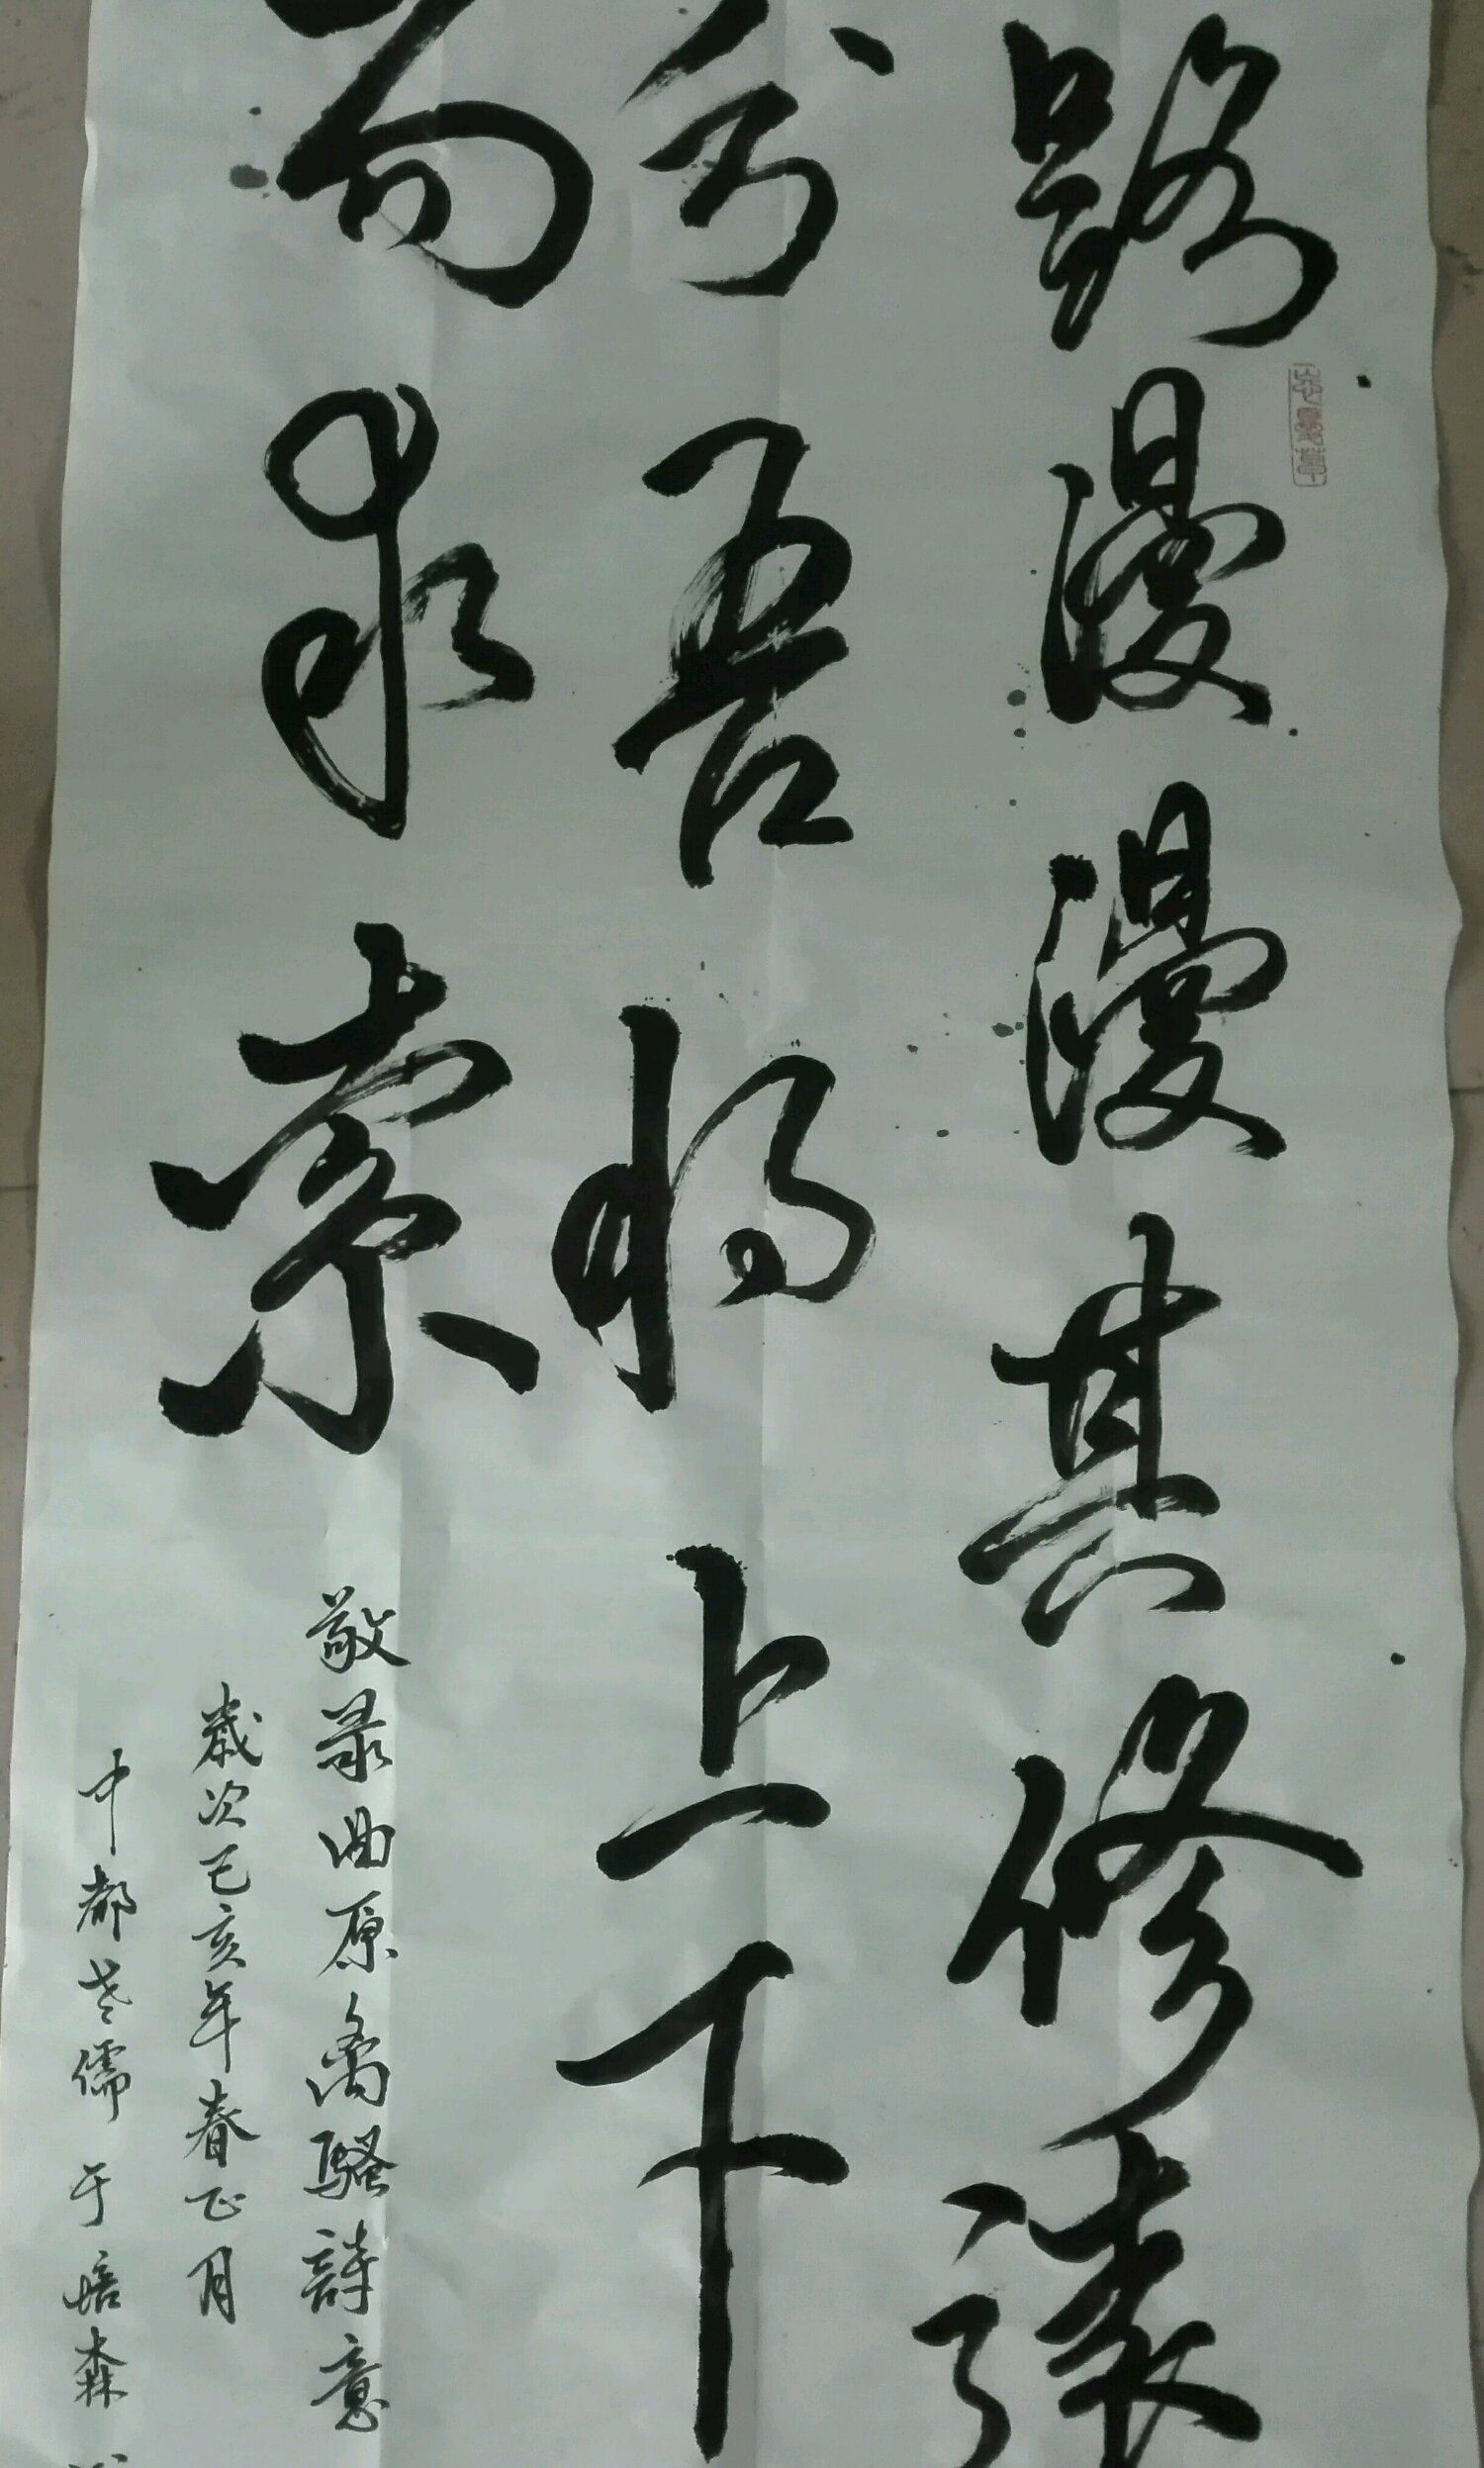 路漫漫其修遠
兮吾将上下
而求索
敬录曲原离騷詩意
歲次己亥年春正月
中都老儒于培森